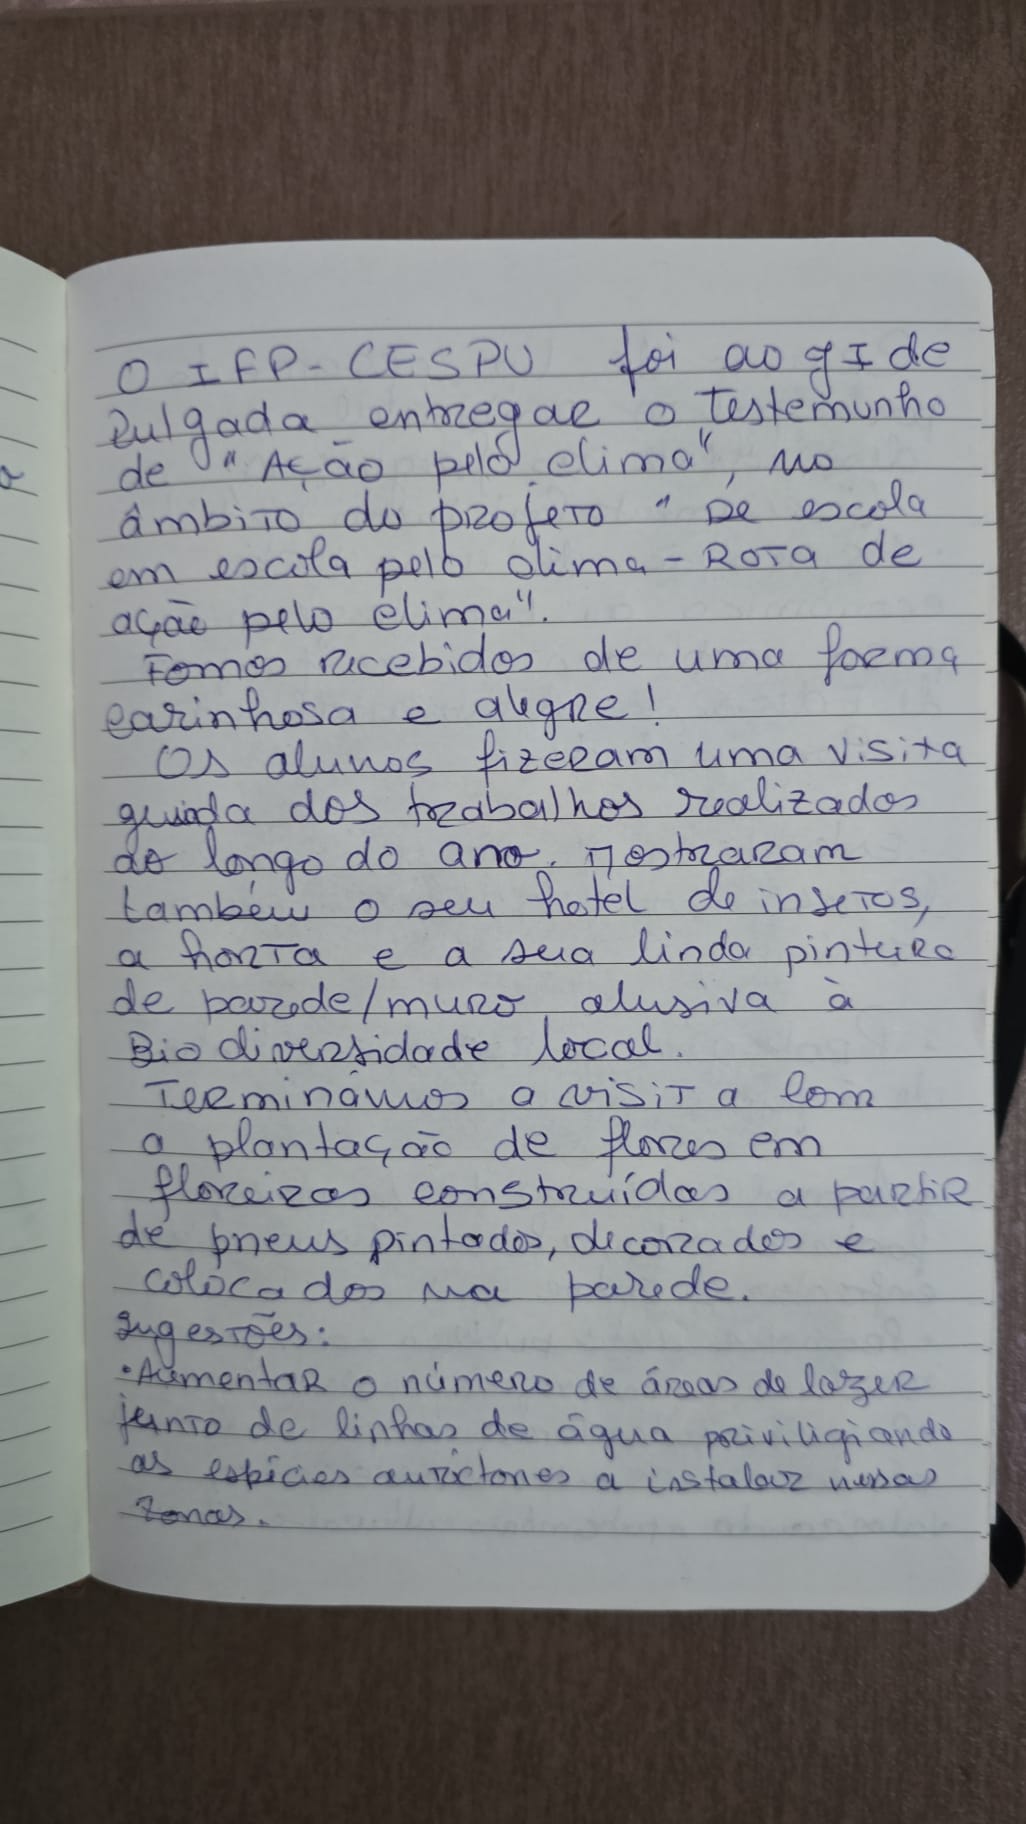 O IFP-CESPU foi ao gI de
Pulgada entregar o Testemunho
de "Ação pelo clima", no
âmbito do projeto "De escola
em escola pelo clima - Rota de
ação pelo clima".
Fomos recebidos de uma forma
carinhosa e alegre!
Os alunos fizeram uma visita
guiada dos trabalhos realizados
ao longo do ano. Mostraram
também o seu hotel de insetos,
a horta e a sua linda pintura
de parede/muro alusiva à
Biodiversidade local.
Terminámos a visita com
a plantação de flores em
floreiras construídas a partir
de pneus pintados, decorados e
colocados na parede.
Sugestões:
• Aumentar o número de áreas de lazer
junto de linhas de água priviligiando
as espécies autóctones a instalar nessas
zonas.